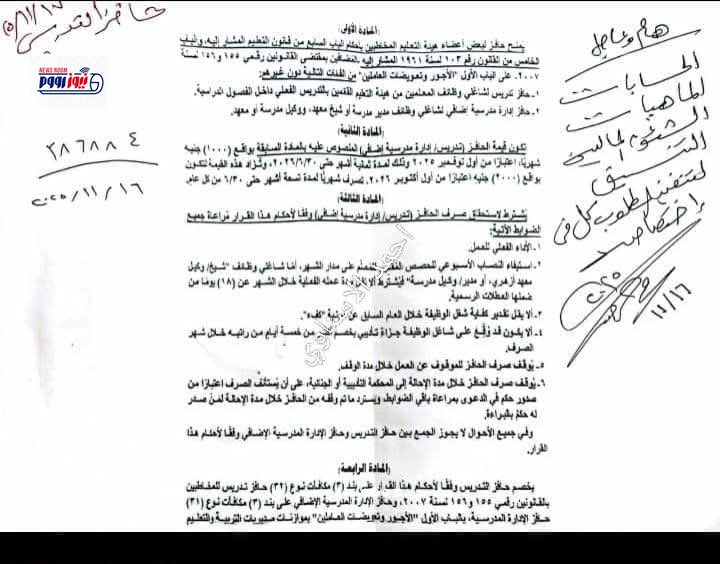 حافز التدريس
NEWS ROOM
نيوز رووم
هام وعاجل
الحسابات
الماهيات
الشئون المالية
التنسيق
لتنفيذ المطلوب كل فى
إختصاصه
١١/١٦
٣٨٦٨٨٤
٢٠٢٥/١١/١٦
المادة الأولى
يمنح حافز لبعض أعضاء هيئة التعليم المخاطبين بأحكام الباب السابع من قانون التعليم المشار إليه، والباب
الخامس من القانون رقم ١٠٣ لسنة ١٩٦١ المشار إليه المضافين بمقتضى القانونين رقمي ١٥٥ و١٥٦ لسنة
٢٠٠٧، على الباب الأول "الأجور وتعويضات العاملين" من الفئات التالية دون غيرهم:
١- حافز تدريس لشاغلي وظائف المعلمين من هيئة التعليم القائمين بالتدريس الفعلي داخل الفصول الدراسية.
٢- حافز إدارة مدرسية إضافي لشاغلي وظائف مدير مدرسة أو شيخ معهد، ووكيل مدرسة أو معهد.
المادة الثانية
تكون قيمة الحافز (تدريس/ إدارة مدرسية إضافي) المنصوص عليه بالمادة السابقة بواقع (١٠٠٠) جنيه
شهريًا، اعتبارًا من أول نوفمبر ٢٠٢٥ وذلك لمدة ثمانية أشهر حتى ٢٠٢٦/٦/٣٠، وتزاد هذه القيمة لتكون
بواقع (٢٠٠٠) جنيه اعتبارًا من أول أكتوبر ٢٠٢٦، تصرف شهريًا لمدة تسعة أشهر حتى ٦/٣٠ من كل عام.
المادة الثالثة
يشترط لاستحقاق صرف الحافز (تدريس/ إدارة مدرسية إضافي) وفقًا لأحكام هذا القرار مُراعاة جميع
الضوابط الآتية:
١- الأداء الفعلي للعمل.
٢- استيفاء النصاب الأسبوعي للحصص المقررة للمعلم على مدار الشهر، أما شاغلي وظائف "شيخ/ وكيل
معهد أزهري، أو مدير/ وكيل مدرسة" فيشترط ألا تقل مدة عمله الفعلية خلال الشهر عن (١٨) يومًا من
ضمنها العطلات الرسمية.
٣- ألا يقل تقدير كفاية شغل الوظيفة خلال العام السابق عن مرتبة "كفء".
٤- ألا يكون قد وُقع على شاغل الوظيفة جزاء تأديبي بخصم أكثر من خمسة أيام من راتبه خلال شهر
الصرف.
٥- يُوقف صرف الحافز للموقوف عن العمل خلال مدة الوقف.
٦- يُوقف صرف الحافز خلال مدة الإحالة إلى المحكمة التأديبية أو الجنائية، على أن يُستأنف الصرف اعتبارًا من
صدور حكم في الدعوى بمراعاة باقي الضوابط، ويسترد ما تم وقفه من الحافز خلال مدة الإحالة لمَن صدر
له حكمٌ بالبراءة.
وفي جميع الأحوال لا يجوز الجمع بين حافز التدريس وحافز الإدارة المدرسية الإضافي وفقًا لأحكام هذا
القرار.
المادة الرابعة
يخصم حافز التدريس وفقًا لأحكام هذا القرار على بند (٣) مكافآت نوع (٣٢) حافز تدريس للمخاطبين
بالقانونين رقمي ١٥٥ و١٥٦ لسنة ٢٠٠٧، وحافز الإدارة المدرسية الإضافي على بند (٣) مكافآت نوع (٣١)
حافز الإدارة المدرسية، بالباب الأول "الأجور وتعويضات العاملين" بموازنات مديريات التربية والتعليم